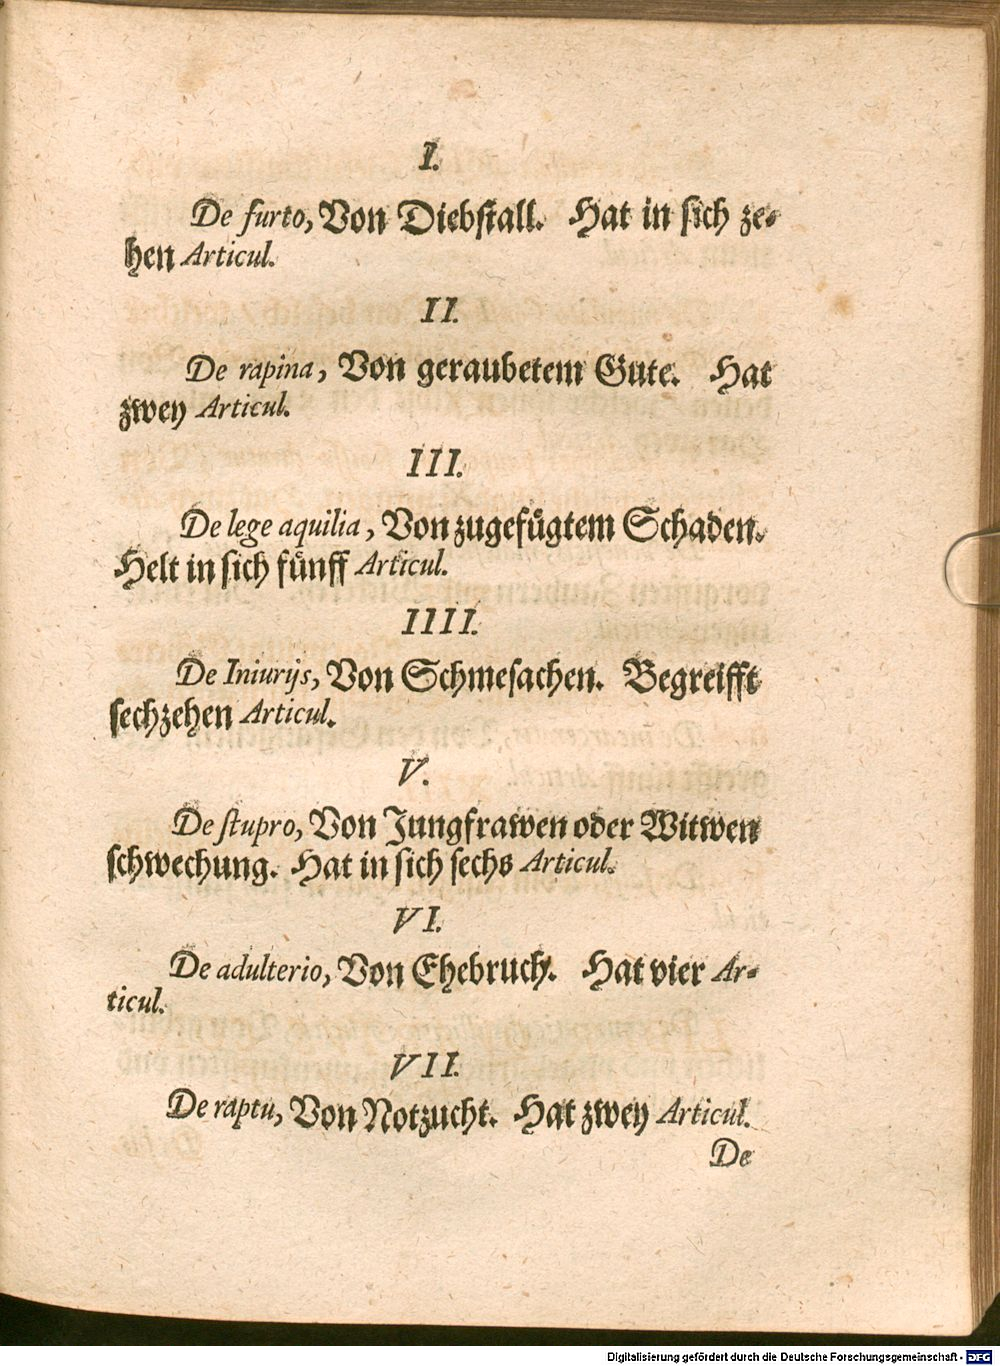 I.
De furto, Von Diebſtall. Hat in ſich ze-
hen Articul.
II.
De rapina, Von geraubetem Gute. Hat
zwey Articul.
III.
De lege aquilia, Von zugefuͤgtem Schaden.
Helt in ſich fuͤnff Articul.
IIII.
De Iniurijs, Von Schmeſachen. Begreifft
ſechzehen Articul.
V.
De ſtupro, Von Jungfrawen oder Witwen
ſchwechung. Hat in ſich ſechs Articul.
VI.
De adulterio, Von Ehebruch. Hat vier Ar-
ticul.
VII.
De raptu, Von Notzucht. Hat zwey Articul.
De
Digitalisierung gefördert durch die Deutsche Forschungsgemeinschaft - DFG